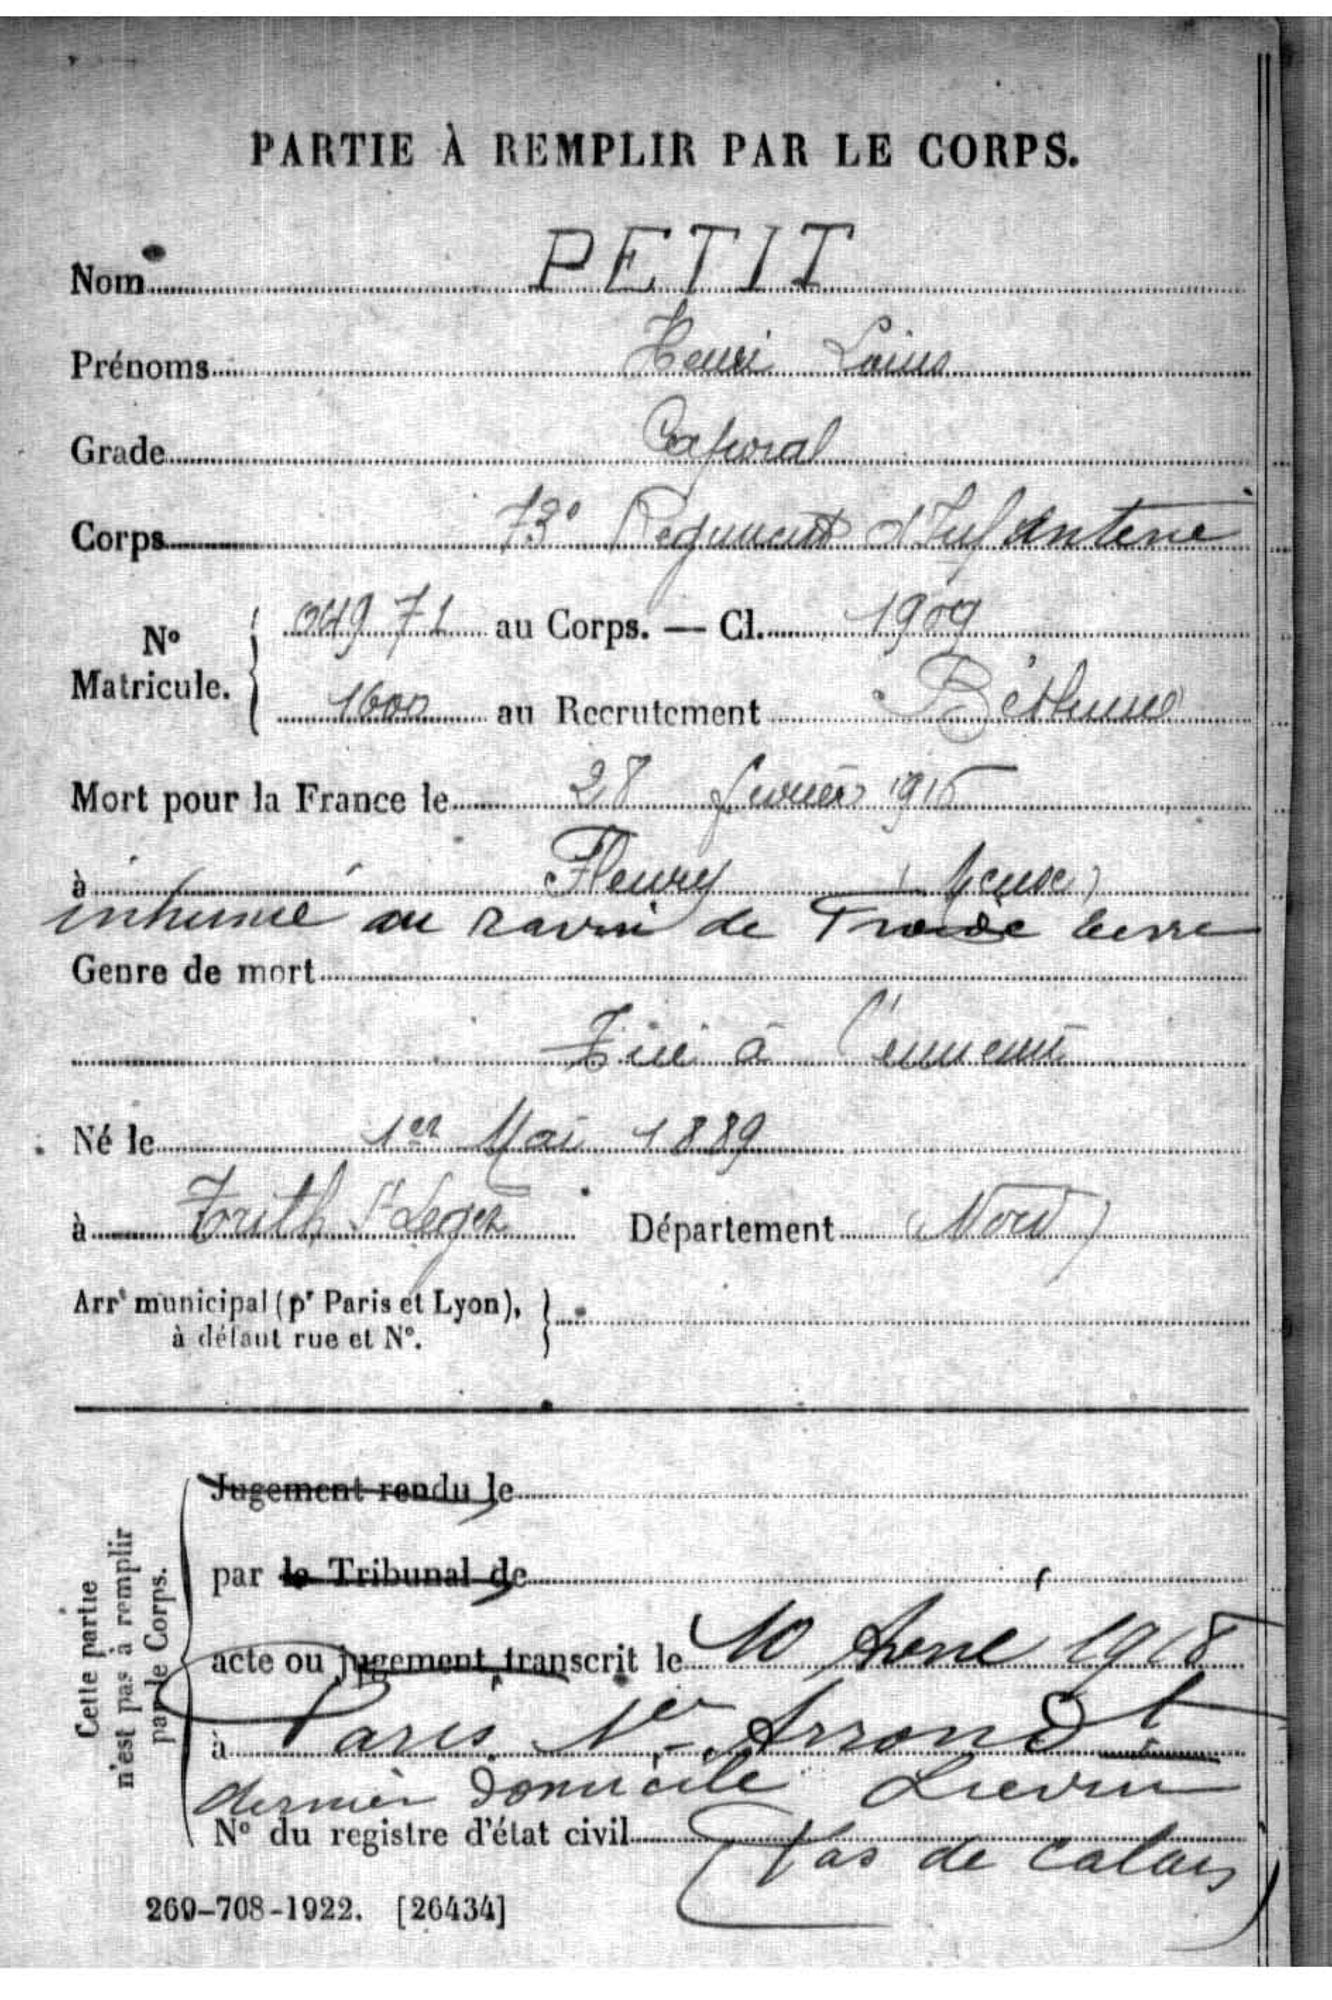 PARTIE À REMPLIR PAR LE CORPS.
Nom PETIT
Prénoms Henri Louis
Grade Caporal
Corps 73e Régiment d'Infanterie
No Matricule. 04971 au Corps. — Cl. 1909
1600 au Recrutement Béthune
Mort pour la France le 28 février 1916
à Fleury (Meuse)
inhumé au ravin de Froide terre
Genre de mort
Tué à l'ennemi
Né le 1er Mai 1889
à Trith St Léger Département (Nord)
Arrt municipal (pr Paris et Lyon),
à défaut rue et No.
Cette partie
n'est pas à remplir
par le Corps.
Jugement rendu le
par le Tribunal de
acte ou jugement transcrit le 10 Avril 1918
à Paris 1er Arrondt
dernier domicile Lievin
No du registre d'état civil
(Pas de Calais)
269-708-1922. [26434]